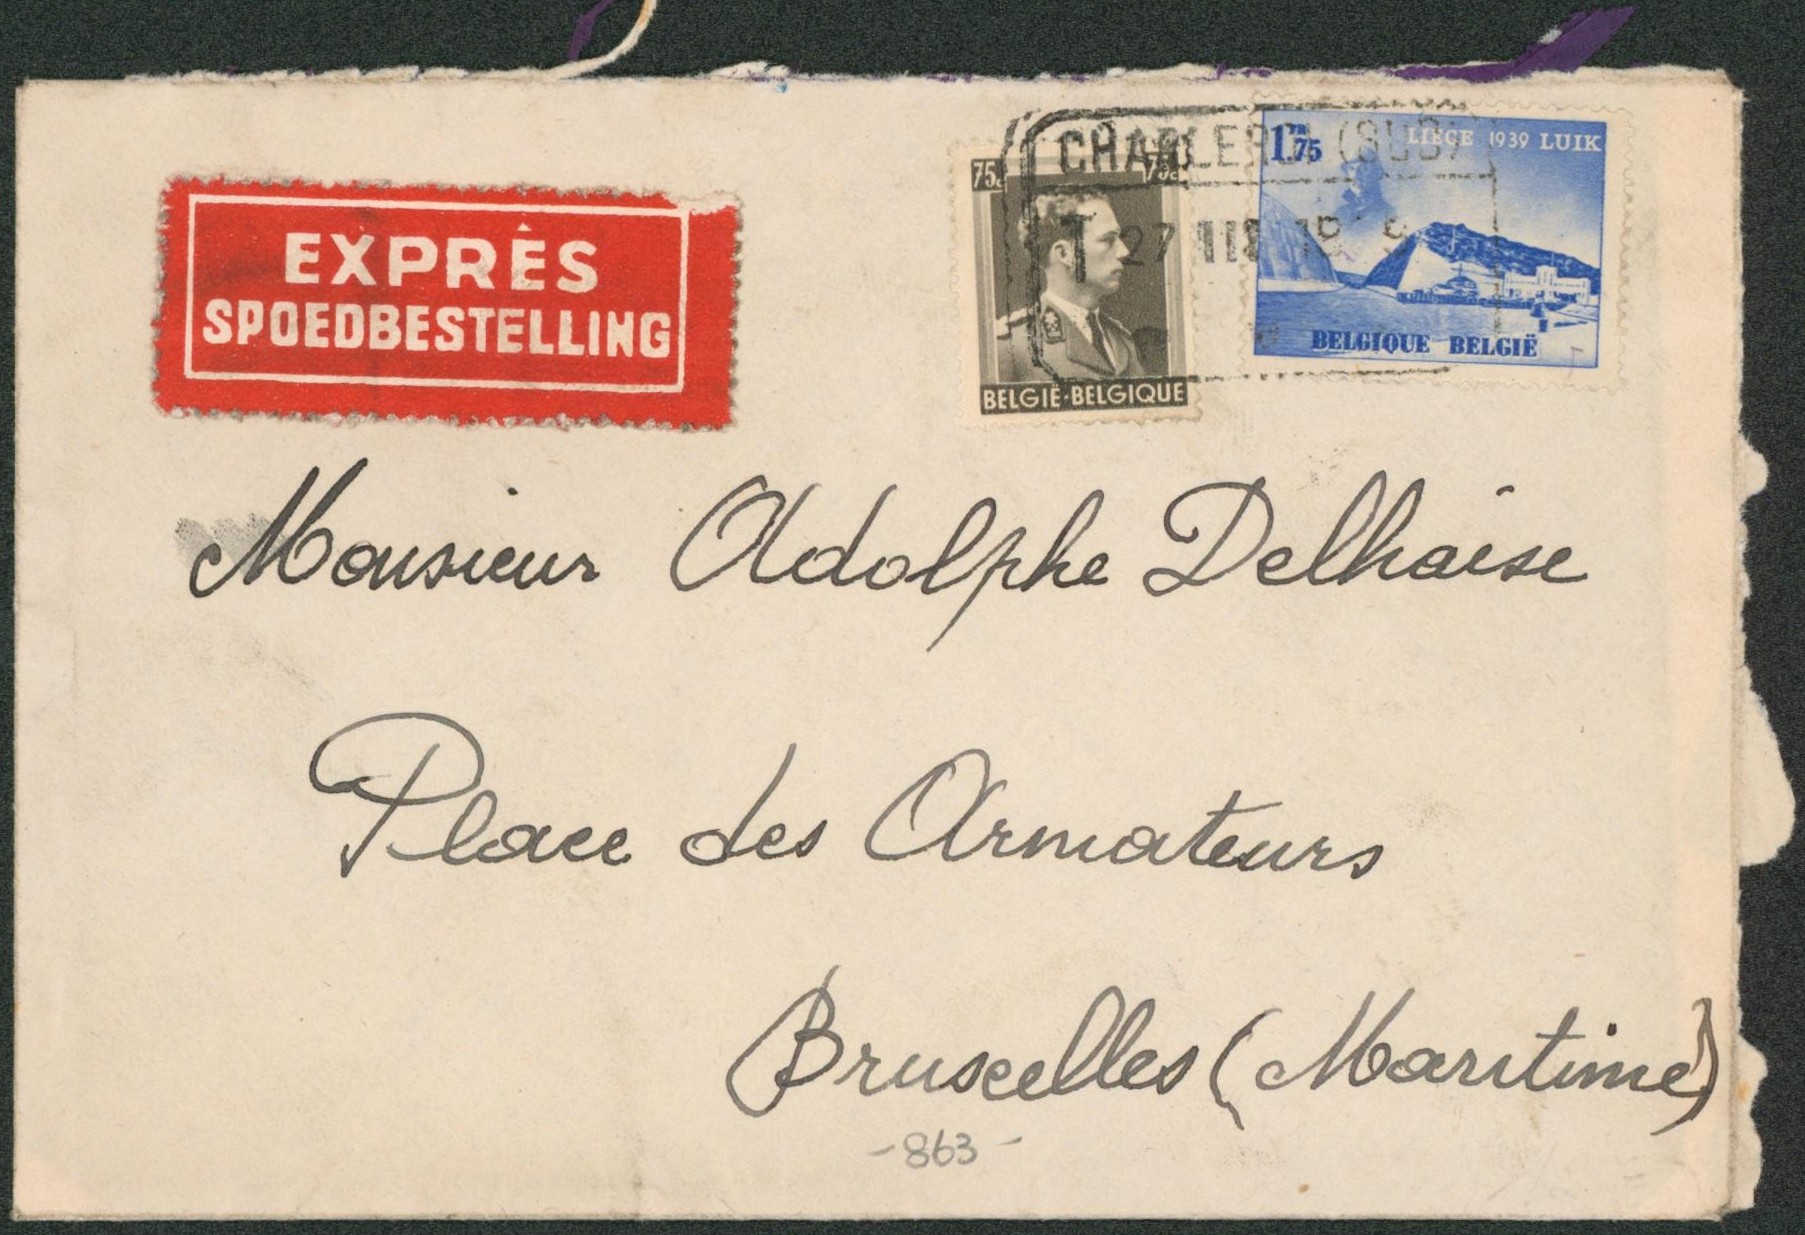 EXPRÈS
SPOEDBESTELLING
75c 75c
BELGIË·BELGIQUE
CHARLEROI (SUD)
T 27 III 19
1F75
LIÈGE 1939 LUIK
BELGIQUE BELGIË
Monsieur Adolphe Delhaise
Place des Armateurs
Bruxelles (Maritime)
-863-